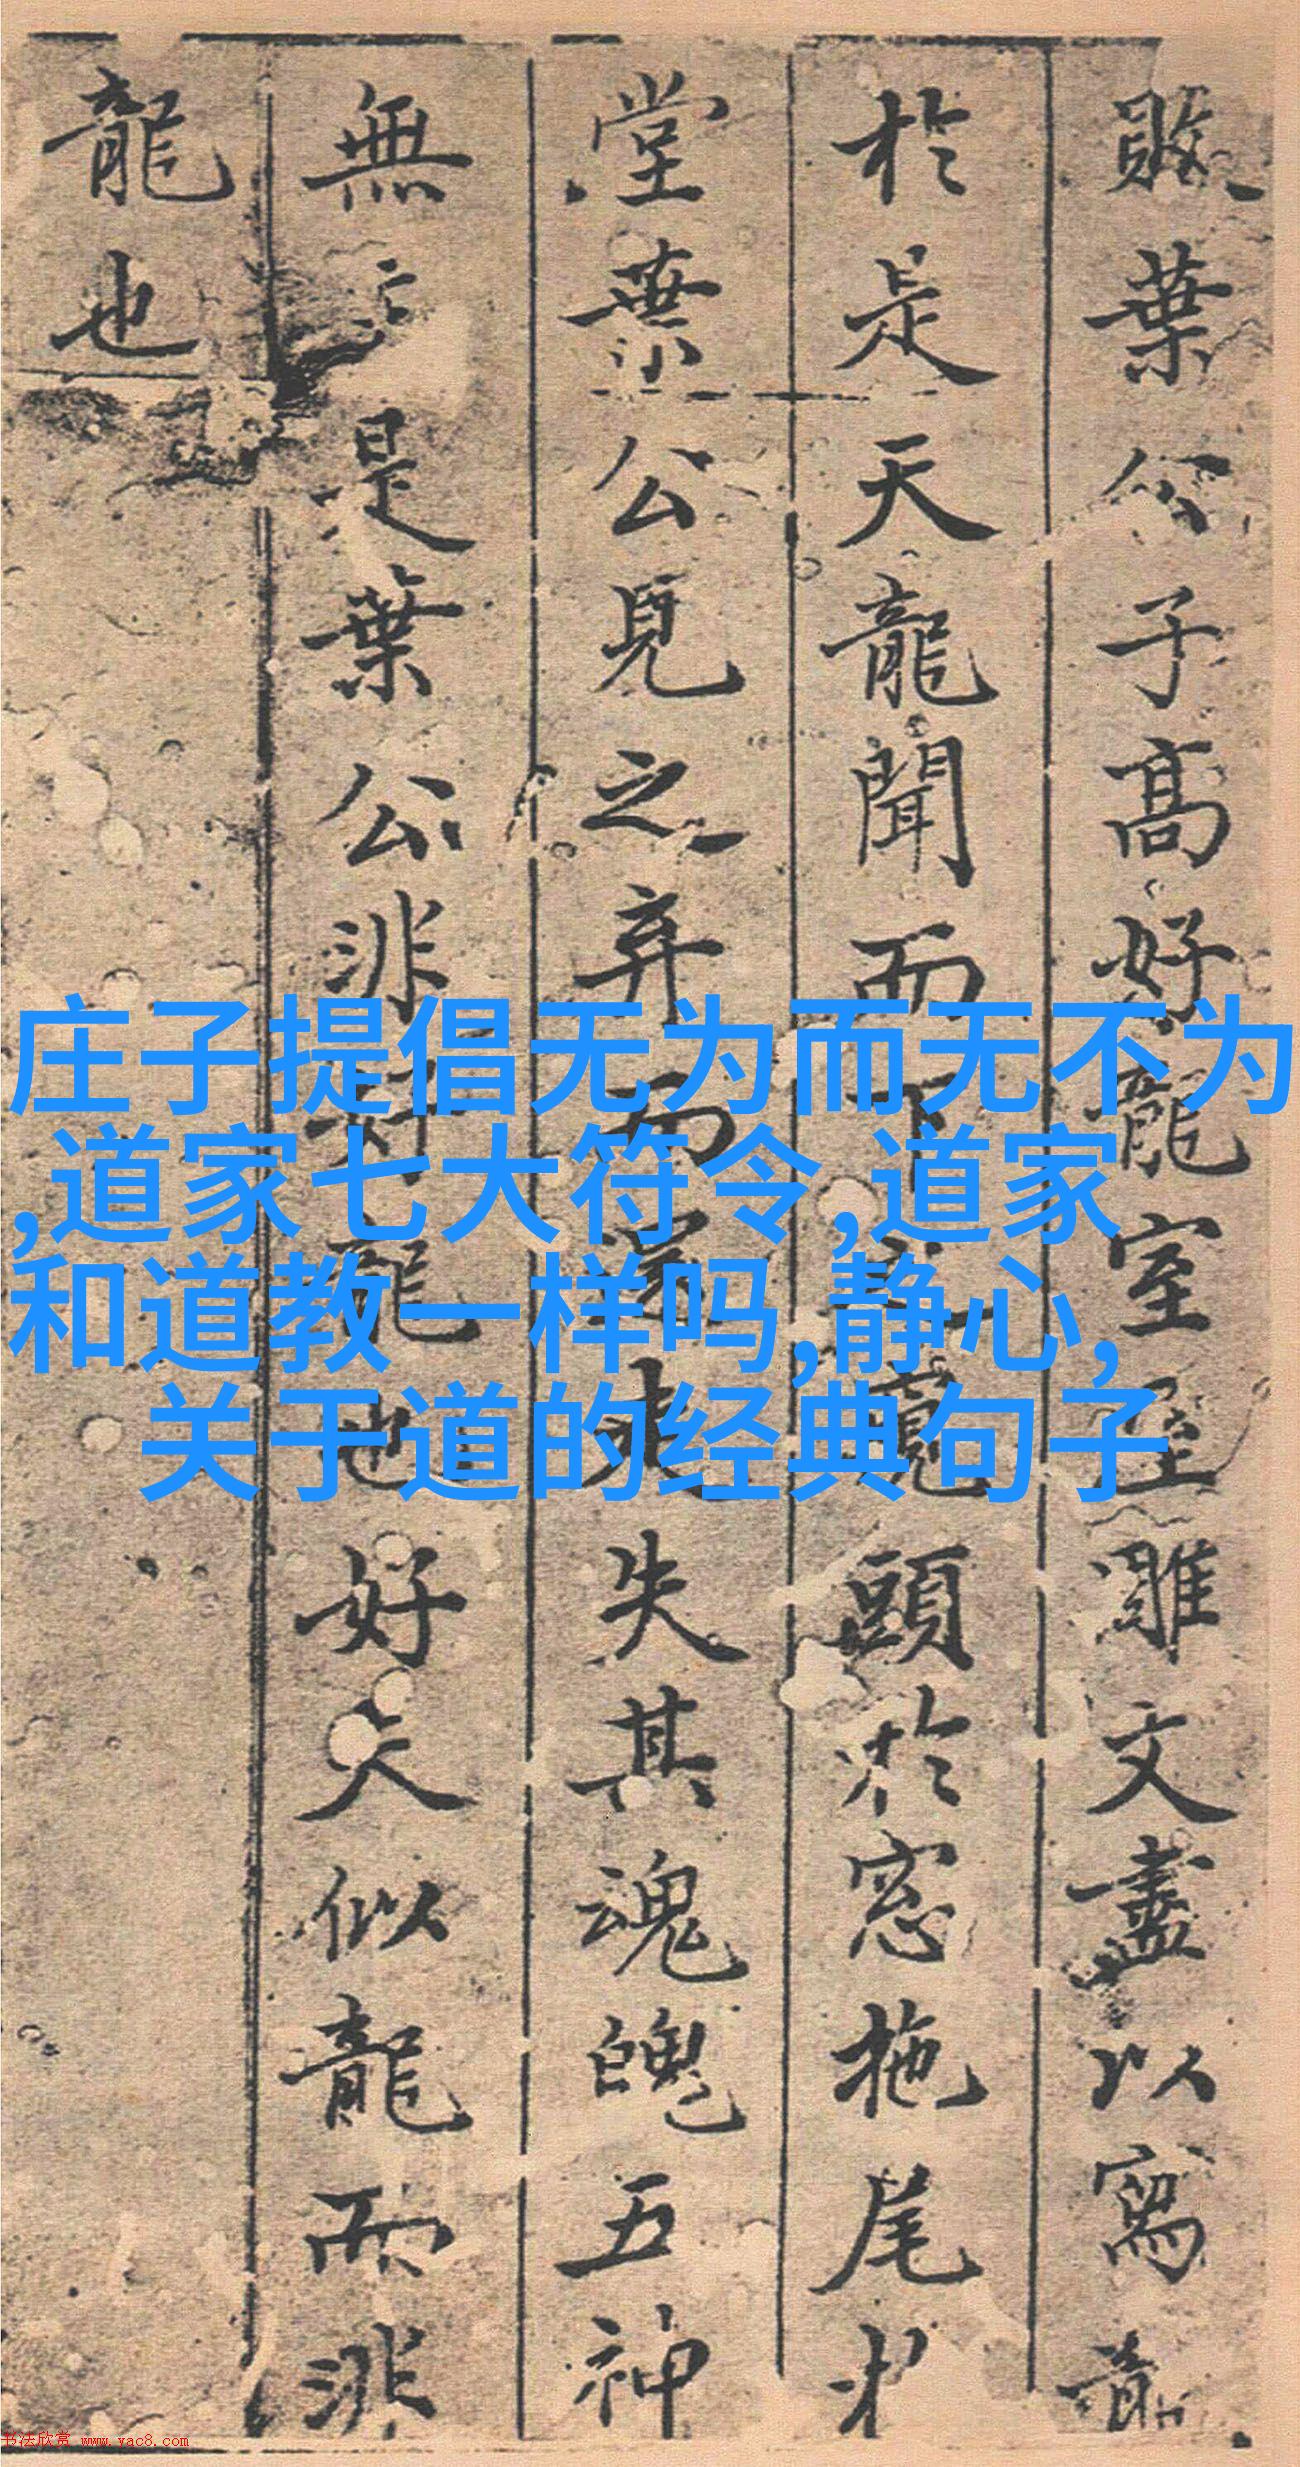 敗葉公子高好龍室屋雕文盡以寫龍
於是天龍聞而下之窺頭於窓拖尾於
堂葉公見之弃而還走失其魂魄五神
無主是葉公非好龍也好夫似龍而非
龍也
庄子提倡无为而无不为
,道家七大符令,道家
和道教一样吗,静心,
关于道的经典句子
书法欣赏 www.yac8.com